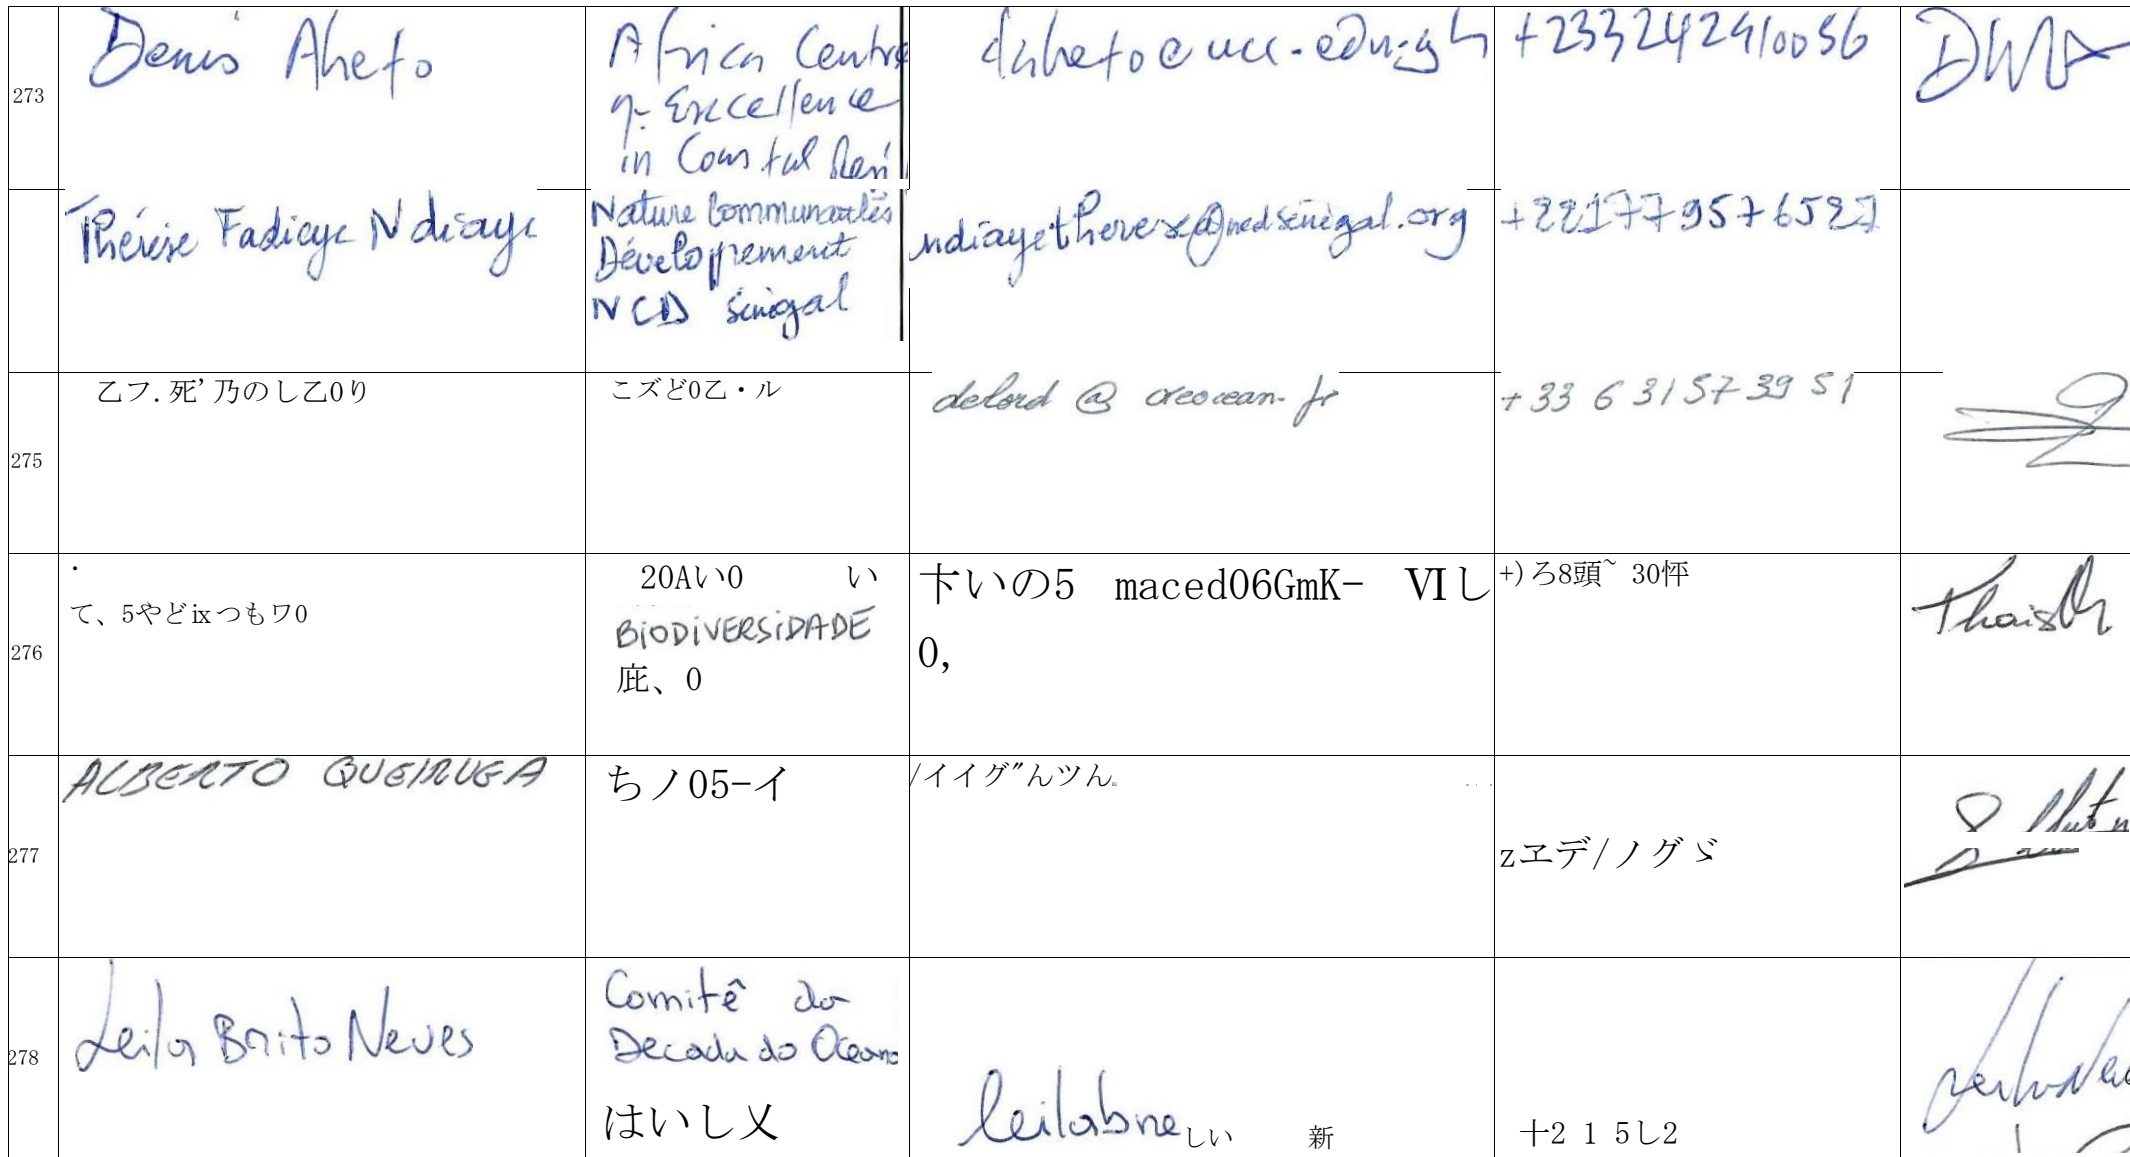 273
Denis Aheto
Africa Centre
of Excellence
in Coastal Resi
daheto@ucc.edu.gh
+233242410056
Thérèse Fadiaye Ndiaye
Nature Communautés
Développement
NCD Sénégal
ndiayetherese@ncdsenegal.org
+221779576527
275
乙フ.死’乃のし乙0り
こズど0乙・ル
delord@oreocean.fr
+33 6 31 57 39 51
276
て、5やどⅸつもワ0
20Aい0 い
BiODiVERSiDADE
庇、0
卞いの5 maced06GmK- Ⅵし
0,
+)ろ8頭~ 30怦
Thais
277
ALBERTO QUEIRUGA
ちノ05-イ
/イイグ"んツん
zヱデ/ノグゞ
278
Leila Brito Neves
Comitê da
Decada do Oceano
はいし乂
leilabne しい 新
十2 1 5し2